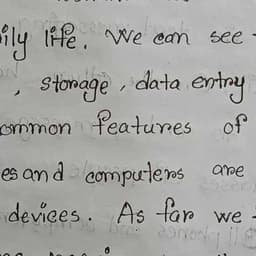 ily life. We can see
, storage, data entry
common features of
es and computers are
devices. As far we